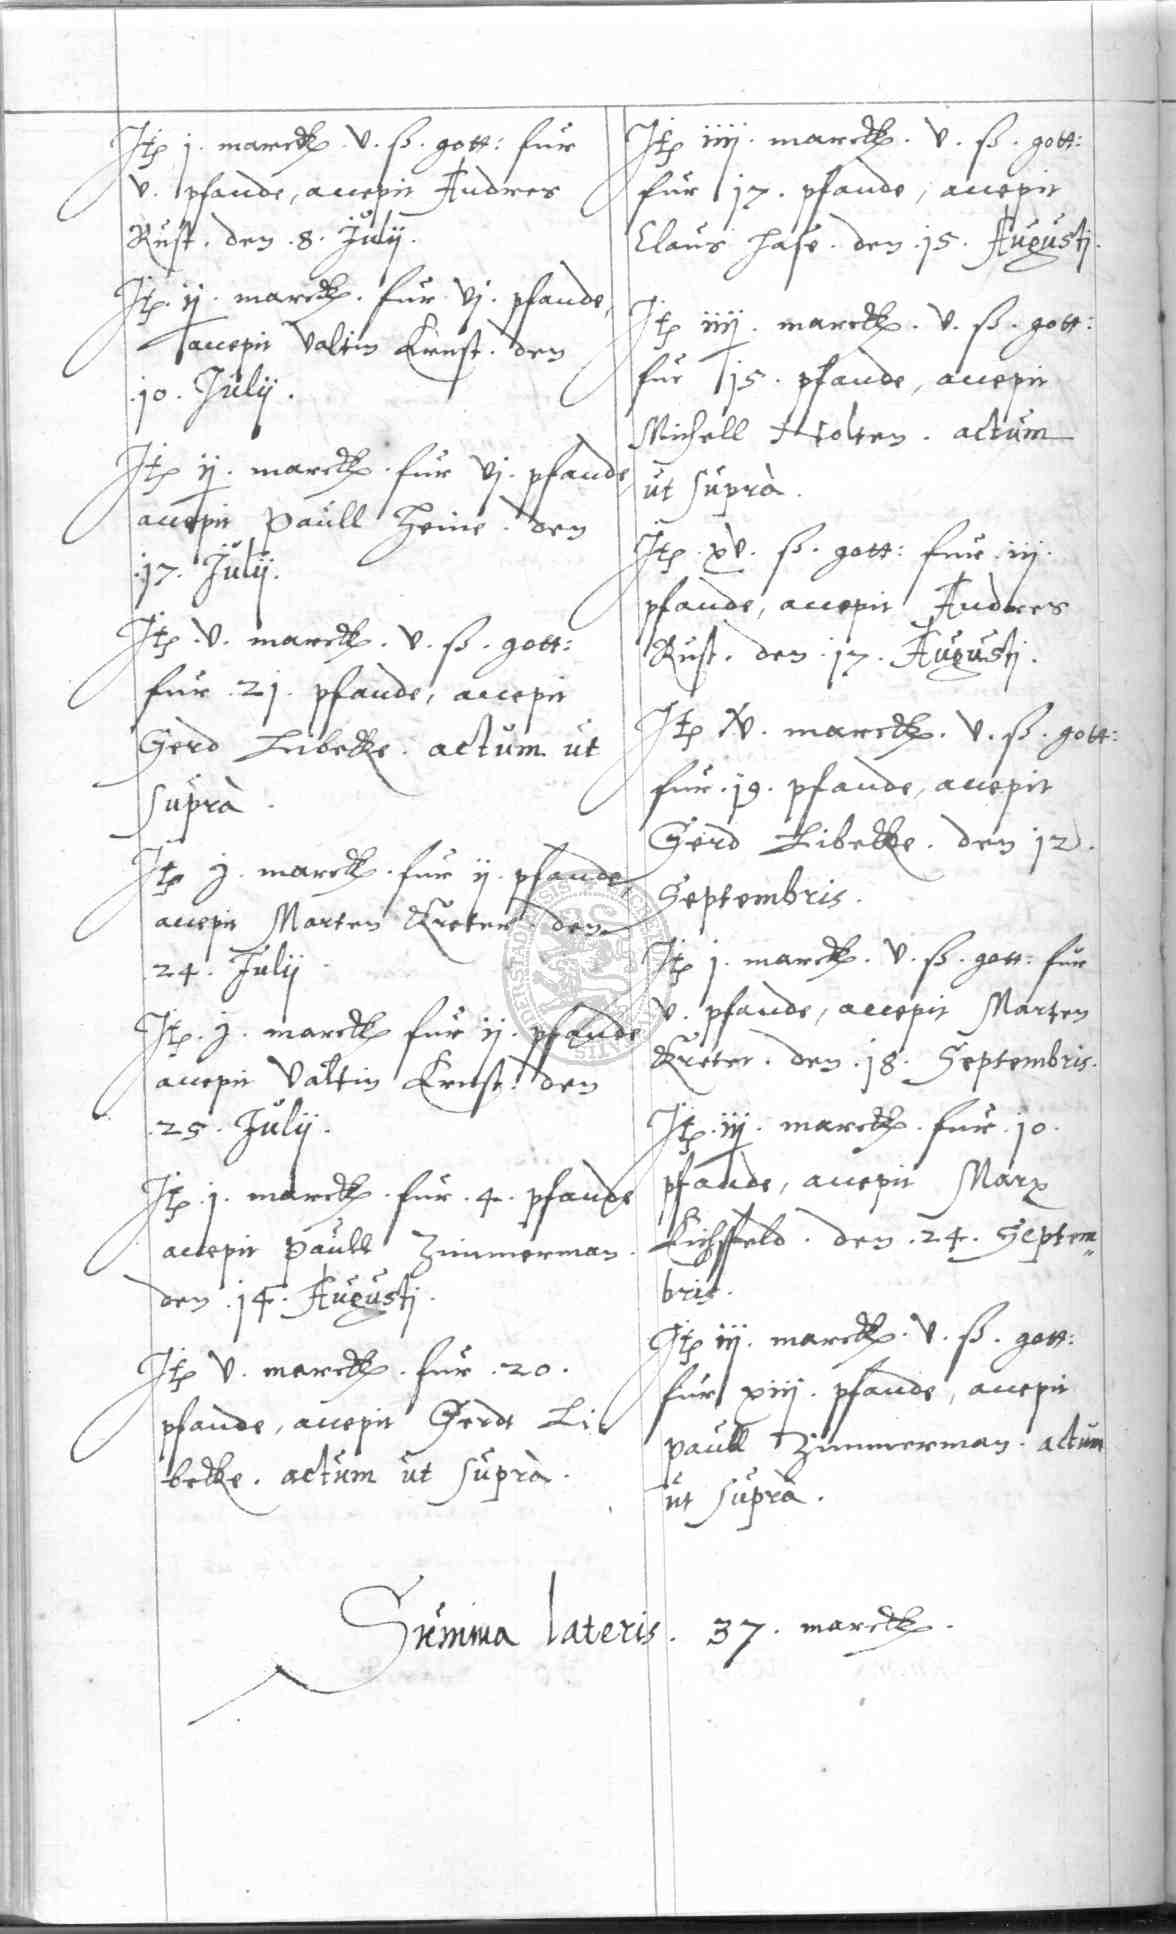 Itē j. marck. v. ß. gott: fur
v. pfande, accepit Andres
Rust. den .8. Julij.
Itē. ij. marck. fur vj. pfande,
accepit Valtin Ernst. den
.10. Julij.
Itē ij. marck. fur vj. pfande
accepit Paull Heine. den
.17. Julij.
Itē. v. marck. v. ß. gott:
fur .21. pfande, accepit
Gerd Libecke. actum ut
suprà.
Itē j. marck. fur ij. pfande,
accepit Marten Kreter. den
24. Julij
Itē. j. marck fur ij. pfande
accepit Valtin Ernst. den
.25. Julij.
Itē .j. marck. fur .4. pfande
accepit Paull Zimmerman.
den .14. Augustj.
Itē v. marck. fur .20.
pfande, accepit Gerdt Li
becke. actum ut suprà.
Itē iiij. marck. v. ß. gott:
fur 17. pfande, accepit
Claus Hase. den .15. Augustj.
Itē iiij. marck. v. ß. gott:
fur 15. pfande, accepit
Michell Holten. actum
ut suprà.
Itē. xv. ß. gott: fur .iij.
pfande, accepit Andres
Rust. den .17. Augustj.
Itē iv. marck. v. ß. gott:
fur .19. pfande, accepit
Gerd Libecke. den 12.
Septembris.
Itē j. marck. v. ß. gott: fur
v. pfande, accepit Marten
Kreter. den .18. Septembris.
Itē .iij. marck. fur .10.
pfande, accepit Marx
Eichsfeld. den .24. Septem„
bris.
Itē iij. marck. v. ß. gott:
fur xiij. pfande, accepit
Paull Zimmerman. actum
ut suprà.
Summa lateris. 37. marck.